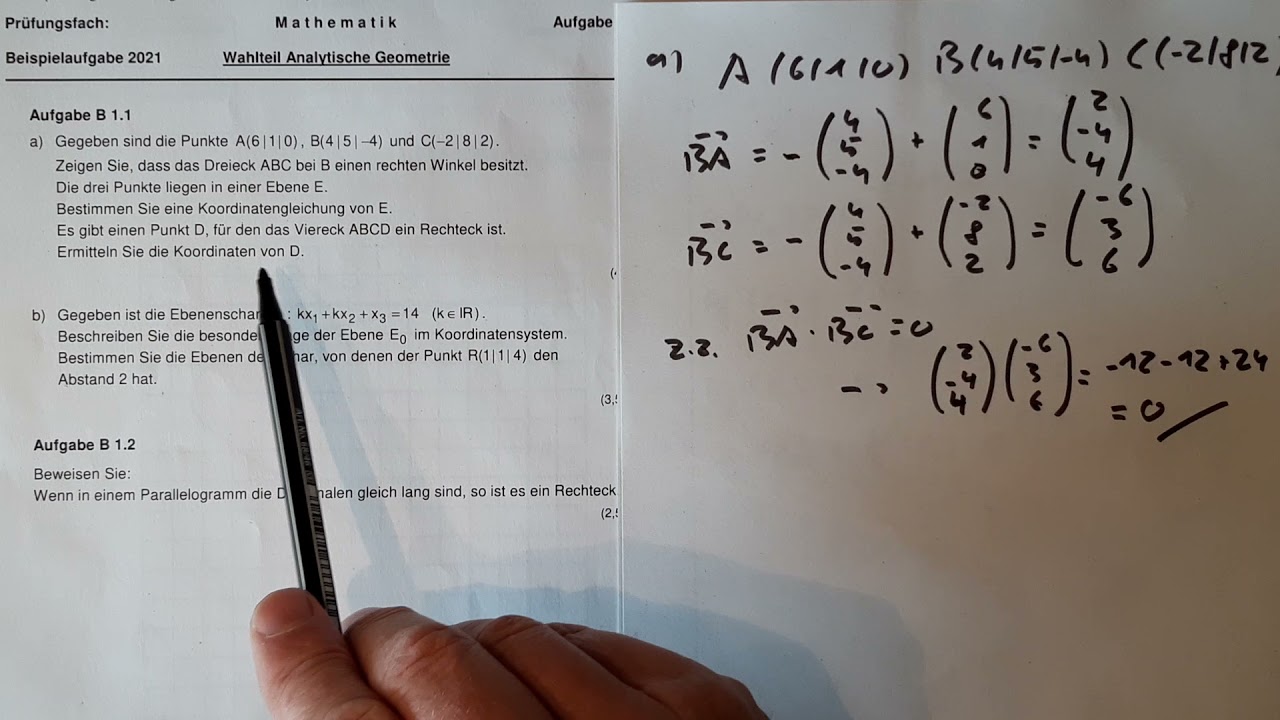 Prüfungsfach: Mathematik Aufgabe
Beispielaufgabe 2021 Wahlteil Analytische Geometrie
Aufgabe B 1.1
a) Gegeben sind die Punkte A(6|1|0), B(4|5|−4) und C(−2|8|2).
Zeigen Sie, dass das Dreieck ABC bei B einen rechten Winkel besitzt.
Die drei Punkte liegen in einer Ebene E.
Bestimmen Sie eine Koordinatengleichung von E.
Es gibt einen Punkt D, für den das Viereck ABCD ein Rechteck ist.
Ermitteln Sie die Koordinaten von D.
b) Gegeben ist die Ebenenschar : kx₁ + kx₂ + x₃ = 14 (k ∈ IR).
Beschreiben Sie die besonde ge der Ebene E₀ im Koordinatensystem.
Bestimmen Sie die Ebenen de har, von denen der Punkt R(1|1|4) den
Abstand 2 hat.
(3,5
Aufgabe B 1.2
Beweisen Sie:
Wenn in einem Parallelogramm die D nalen gleich lang sind, so ist es ein Rechteck
(2,5
a) A (6/1/0) B(4/5/-4) C(-2/8/2)
BA = - (4 5 -4) + (6 1 0) = (2 -4 4)
BC = - (4 5 -4) + (-2 8 2) = (-6 3 6)
z.z. BA · BC = 0
→ (2 -4 4) (-6 3 6) = -12 - 12 + 24
= 0